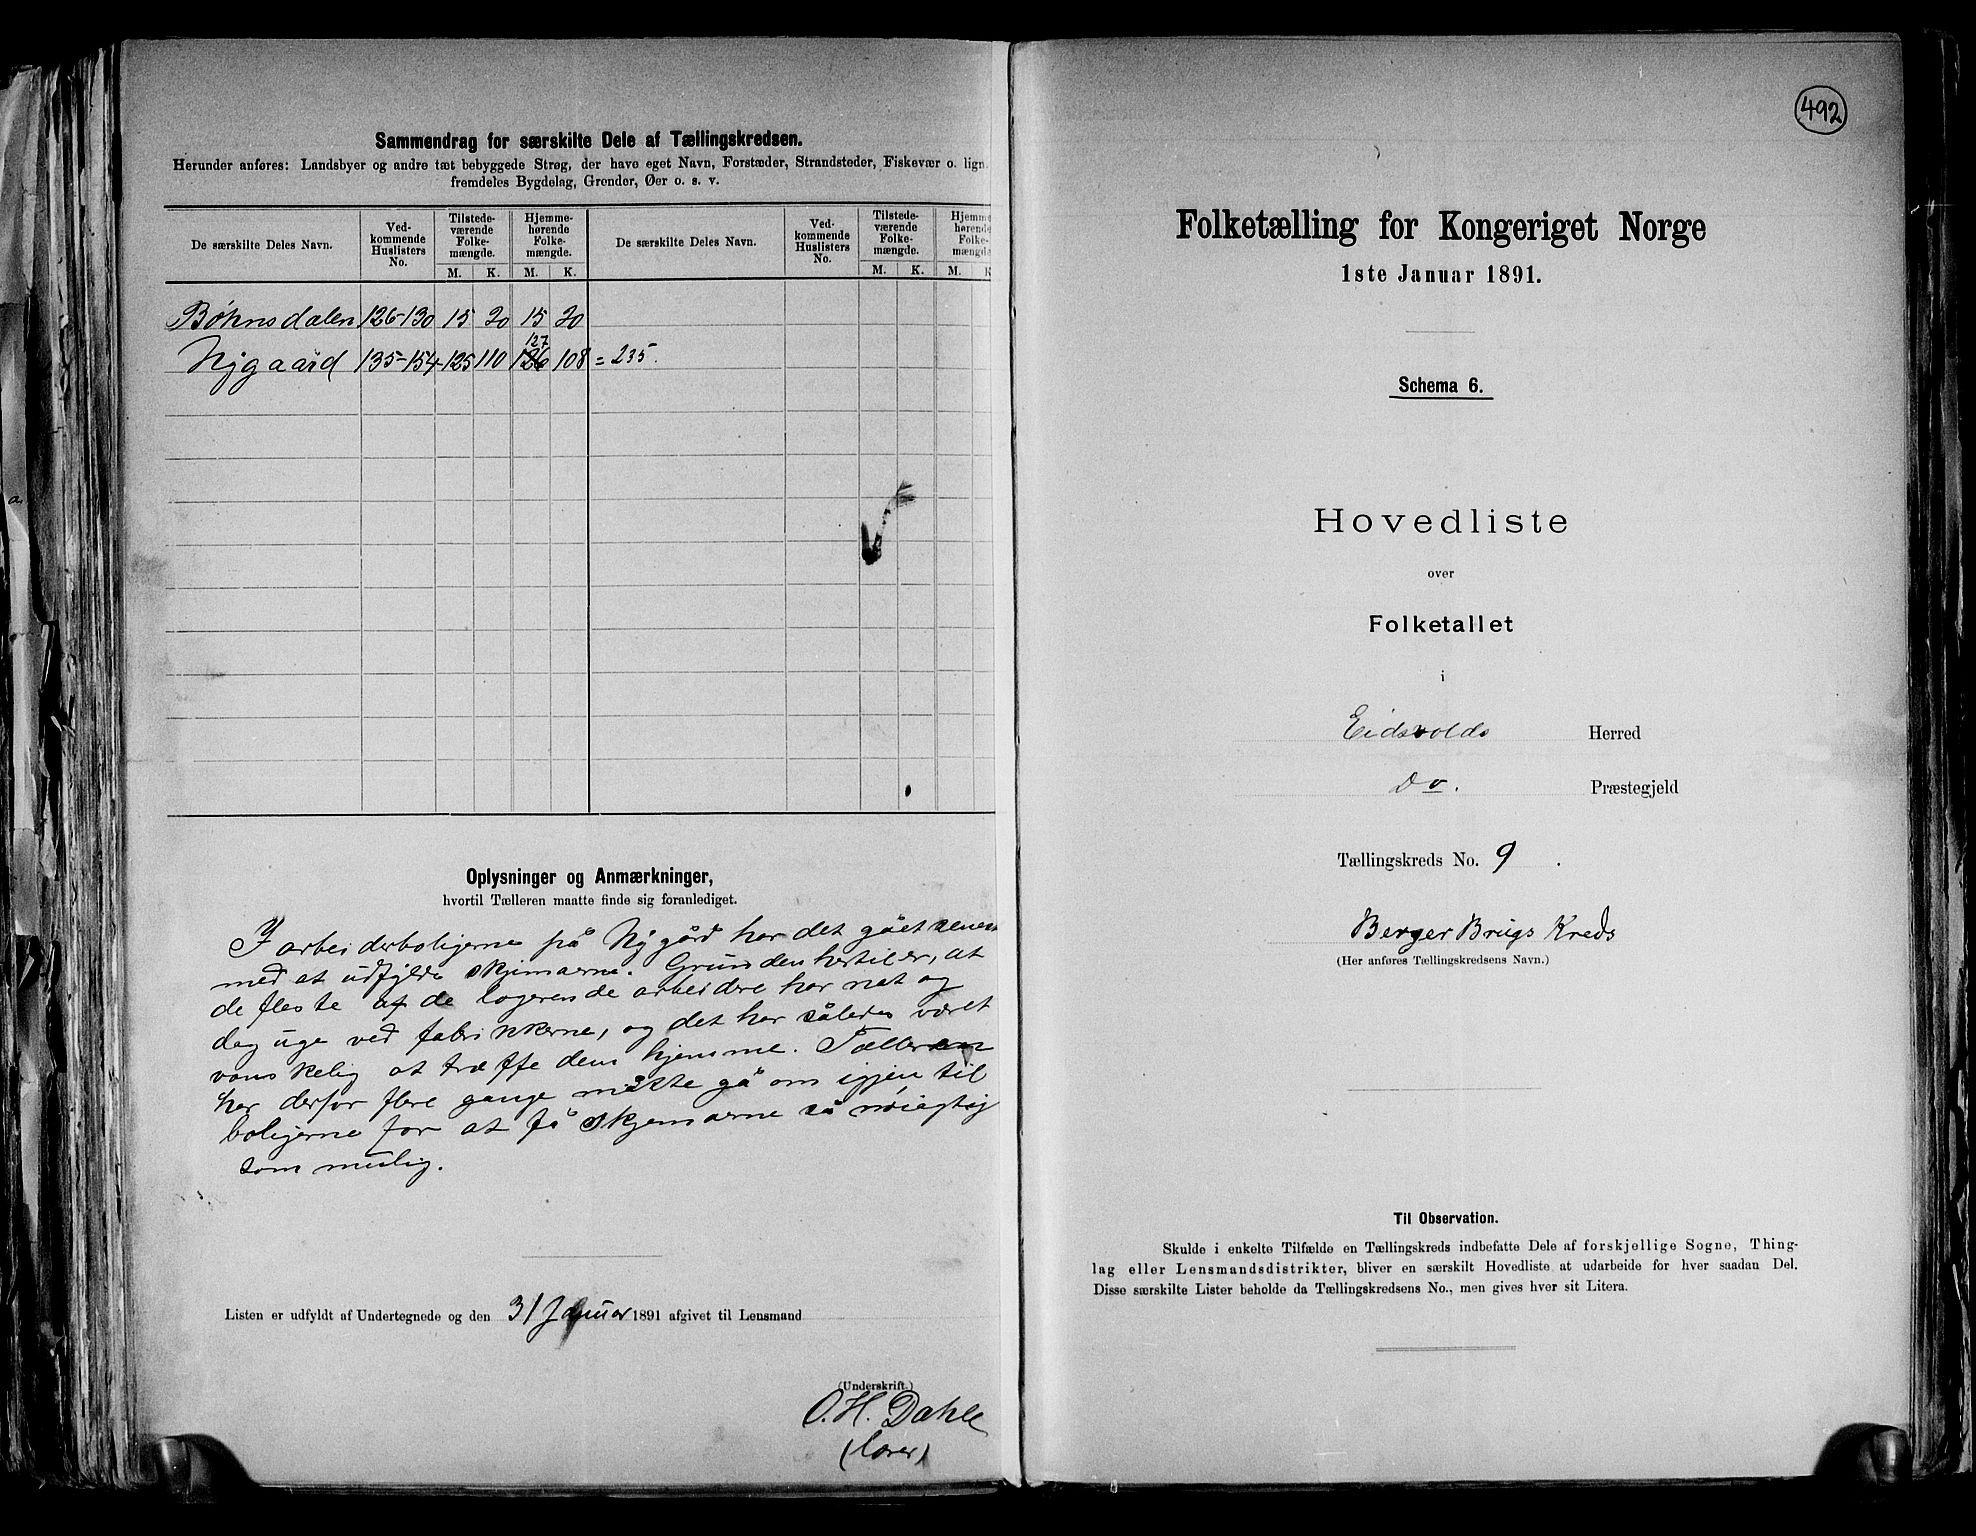 Sammendrag for særskilte Dele af Tællingskredsen.
Herunder anføres: Landsbyer og andre tæt bebyggede Strøg, der have eget Navn, Forstæder, Strandsteder, Fiskevær o. lign.
fremdeles Bygdelag, Grender, Øer o. s. v.
De særskilte Deles Navn. Ved-kommende Huslisters No. Tilstede-værende Folke-mængde. Hjemme-hørende Folke-mængde. De særskilte Deles Navn. Ved-kommende Huslisters No. Tilstede-værende Folke-mængde. Hjemme-hørende Folke-mængde
M. K. M. K. M. K. M. K
Bøhnsdalen 126-130 15 20 15 20
127
Nygaard 135-154 125 110 126 108 = 235.
Oplysninger og Anmærkninger,
hvortil Tælleren maatte finde sig foranlediget.
I arbeiderboligerne på Nygård har det gået
med at udfylde skjemaerne. Grunden hertil er, at
de fleste af de logerende arbeidere har nat og
dag uge ved fabrikkerne, og det har således været
vanskelig at træffe dem hjemme. Tælleren
har derfor flere gange måtte gå om igjen til
boligerne for at få skjemaerne så nøiagtig
som mulig.
Listen er udfyldt af Undertegnede og den 31 Januar 1891 afgivet til Lensmand
(Underskrift.)
O. H. Dahle
(lærer)
492
Folketælling for Kongeriget Norge
1ste Januar 1891.
Schema 6.
Hovedliste
over
Folketallet
i
Eidsvolds Herred
Do. Præstegjeld
Tællingskreds No. 9.
Berger Brugs Kreds
(Her anføres Tællingskredsens Navn.)
Til Observation.
Skulde i enkelte Tilfælde en Tællingskreds indbefatte Dele af forskjellige Sogne, Thing-
lag eller Lensmandsdistrikter, bliver en særskilt Hovedliste at udarbeide for hver saadan Del.
Disse særskilte Lister beholde da Tællingskredsens No., men gives hver sit Litera.